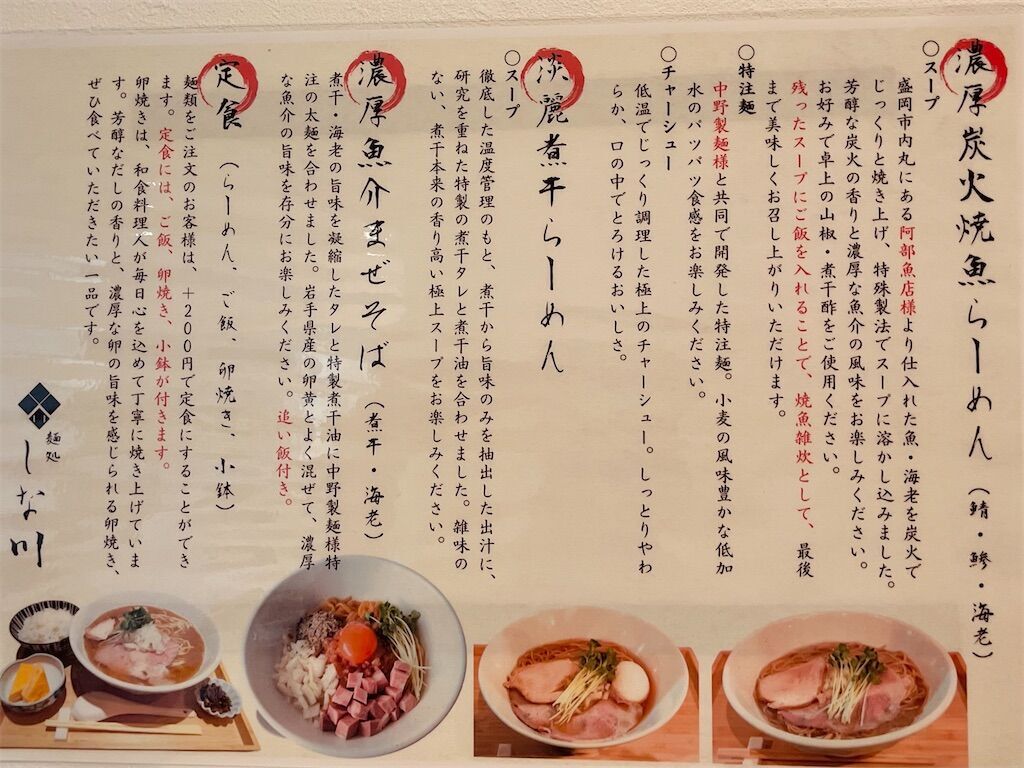 濃厚炭火焼魚らーめん（鯖・鰺・海老）
〇スープ
盛岡市内丸にある阿部魚店様より仕入れた魚・海老を炭火で
じっくりと焼き上げ、特殊製法でスープに溶かし込みました。
芳醇な炭火の香りと濃厚な魚介の風味をお楽しみください。
お好みで卓上の山椒・煮干酢をご使用ください。
残ったスープにご飯を入れることで、焼魚雑炊として、最後
まで美味しくお召し上がりいただけます。
〇特注麺
中野製麺様と共同で開発した特注麺。小麦の風味豊かな低加
水のパツパツ食感をお楽しみください。
〇チャーシュー
低温でじっくり調理した極上のチャーシュー。しっとりやわ
らか、口の中でとろけるおいしさ。
淡麗煮干らーめん
〇スープ
徹底した温度管理のもと、煮干から旨味のみを抽出した出汁に、
研究を重ねた特製の煮干タレと煮干油を合わせました。雑味の
ない、煮干本来の香り高い極上スープをお楽しみください。
濃厚魚介まぜそば（煮干・海老）
煮干・海老の旨味を凝縮したタレと特製煮干油に中野製麺様特
注の太麺を合わせました。岩手県産の卵黄とよく混ぜて、濃厚
な魚介の旨味を存分にお楽しみください。追い飯付き。
定食（らーめん、ご飯、卵焼き、小鉢）
麺類をご注文のお客様は、＋200円で定食にすることができ
ます。定食には、ご飯、卵焼き、小鉢が付きます。
卵焼きは、和食料理人が毎日心を込めて丁寧に焼き上げていま
す。芳醇なだしの香りと、濃厚な卵の旨味を感じられる卵焼き、
ぜひ食べていただきたい一品です。
麺処
しな川